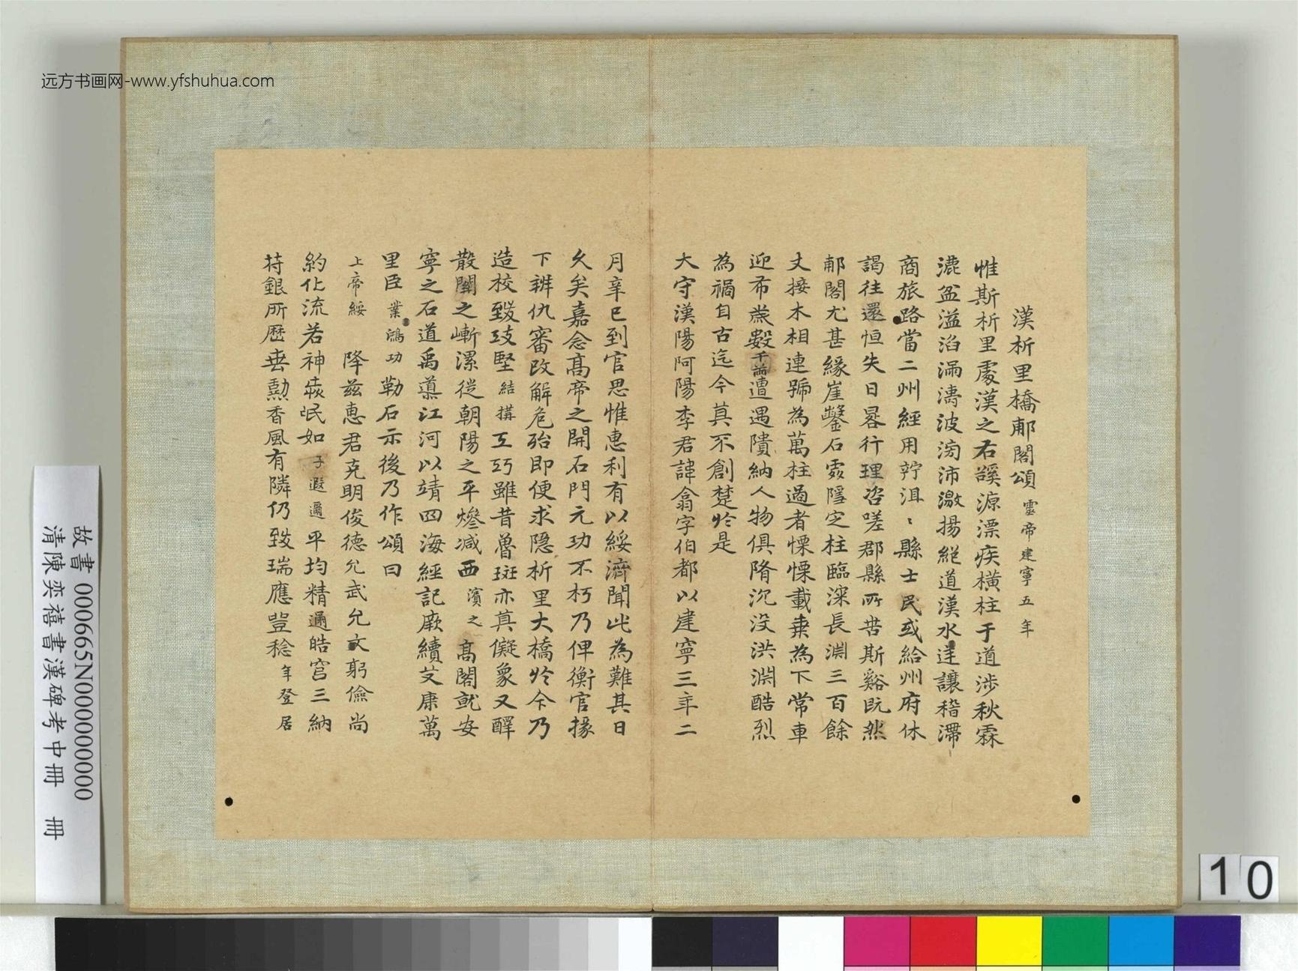 远方书画网-www.yfshuhua.com
漢析里橋郙閣頌 靈帝建寧五年
惟斯析里處漢之右谿源漂疾橫柱于道涉秋霖
漉盆溢滔涌濤波滂沛激揚絕道漢水逆讓稽滯
商旅路當二州經用狞沮〻縣士民或給州府休
謁往還恒失日晷行理咨嗟郡縣所苦斯谿既然
郙閣尤甚緣崖鑿石處隱定柱臨深長淵三百餘
丈接木相連號為萬柱過者慄慄載乘為下常車
迎布歲數千兩遭遇隤納人物俱隋沉沒洪淵酷烈
為禍自古迄今莫不創楚於是
大守漢陽阿陽李君諱翕字伯都以建寧三年二
月辛巳到官思惟惠利有以綏濟聞此為難其日
久矣嘉念高帝之開石門元功不朽乃俾衡官掾
下辨仇審改解危殆即便求隱析里大橋於今乃
造校致攻堅結搆工巧雖昔魯班亦莫儗象又醳
散關之嶃漯從朝陽之平燍减西濱之高閣就安
寧之石道禹導江河以靖四海經記厥續艾康萬
里臣業鴻功勒石示後乃作頌曰
上帝綏 降茲惠君克明俊德允武允文躬儉尚
約化流若神爱氓如子遐邇平均精通皓穹三納
苻銀所歷垂勲香風有隣仍致瑞應豈稔年登居
故書 000665N000000000
清陳奕禧書漢碑考中冊 冊
10